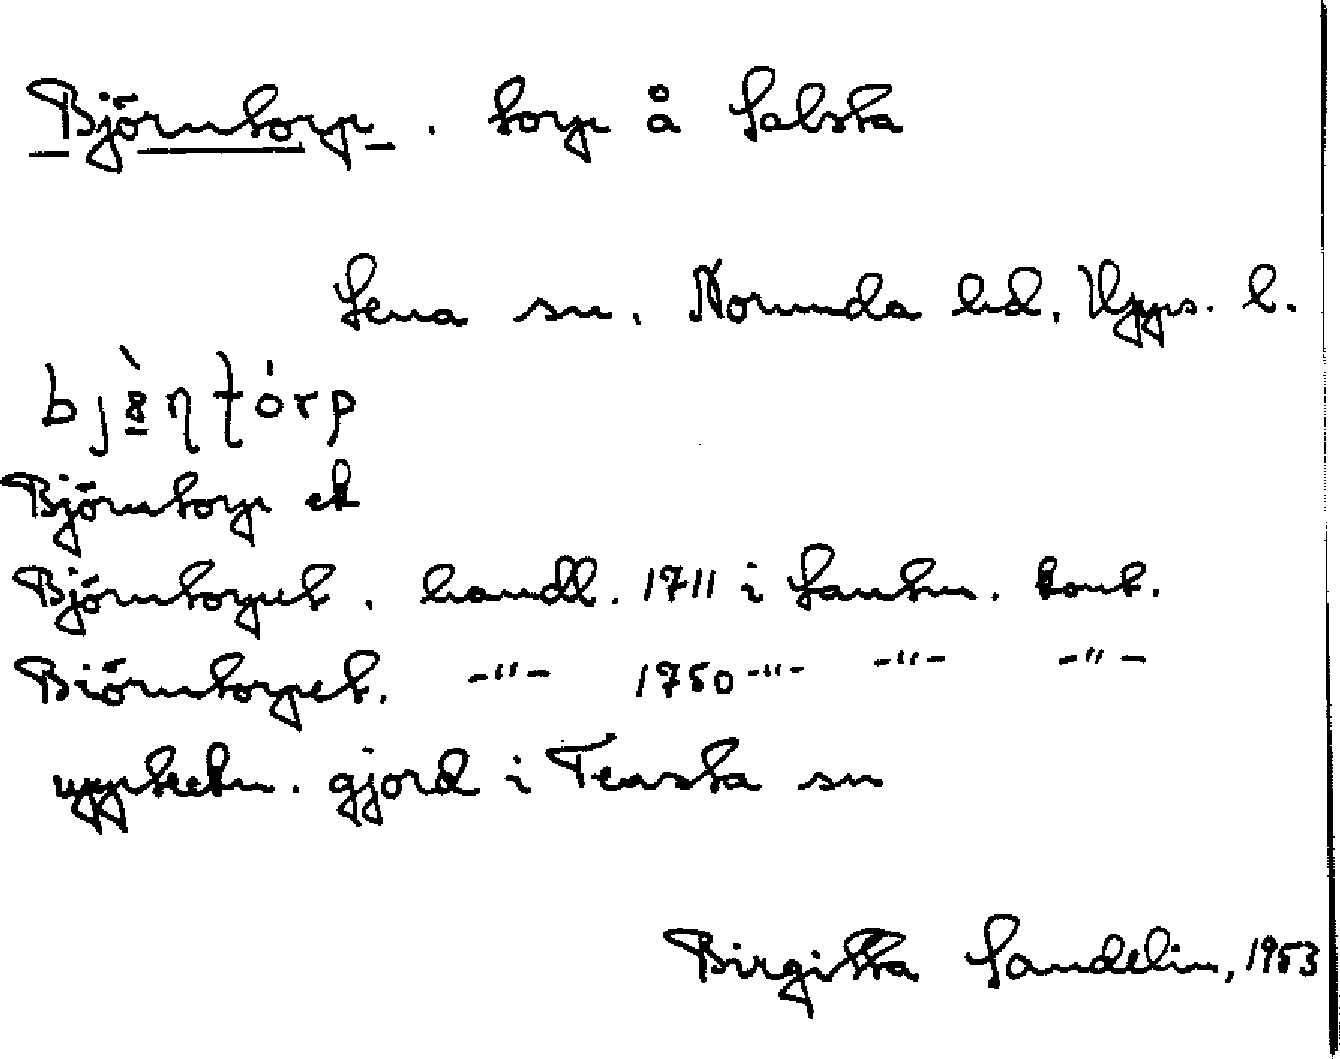 Björntorp. torp å Salsta
Lena sn. Norunda hd. Upps. l.
bjö̀ṇtórp
Björntorp ek
Björntorpet. handl. 1711 i Lantm. kont.
Biörntorpet. -"- 1750 -"- -"- -"-
uppteckn. gjord i Tensta sn
Birgitta Sandelin, 1953